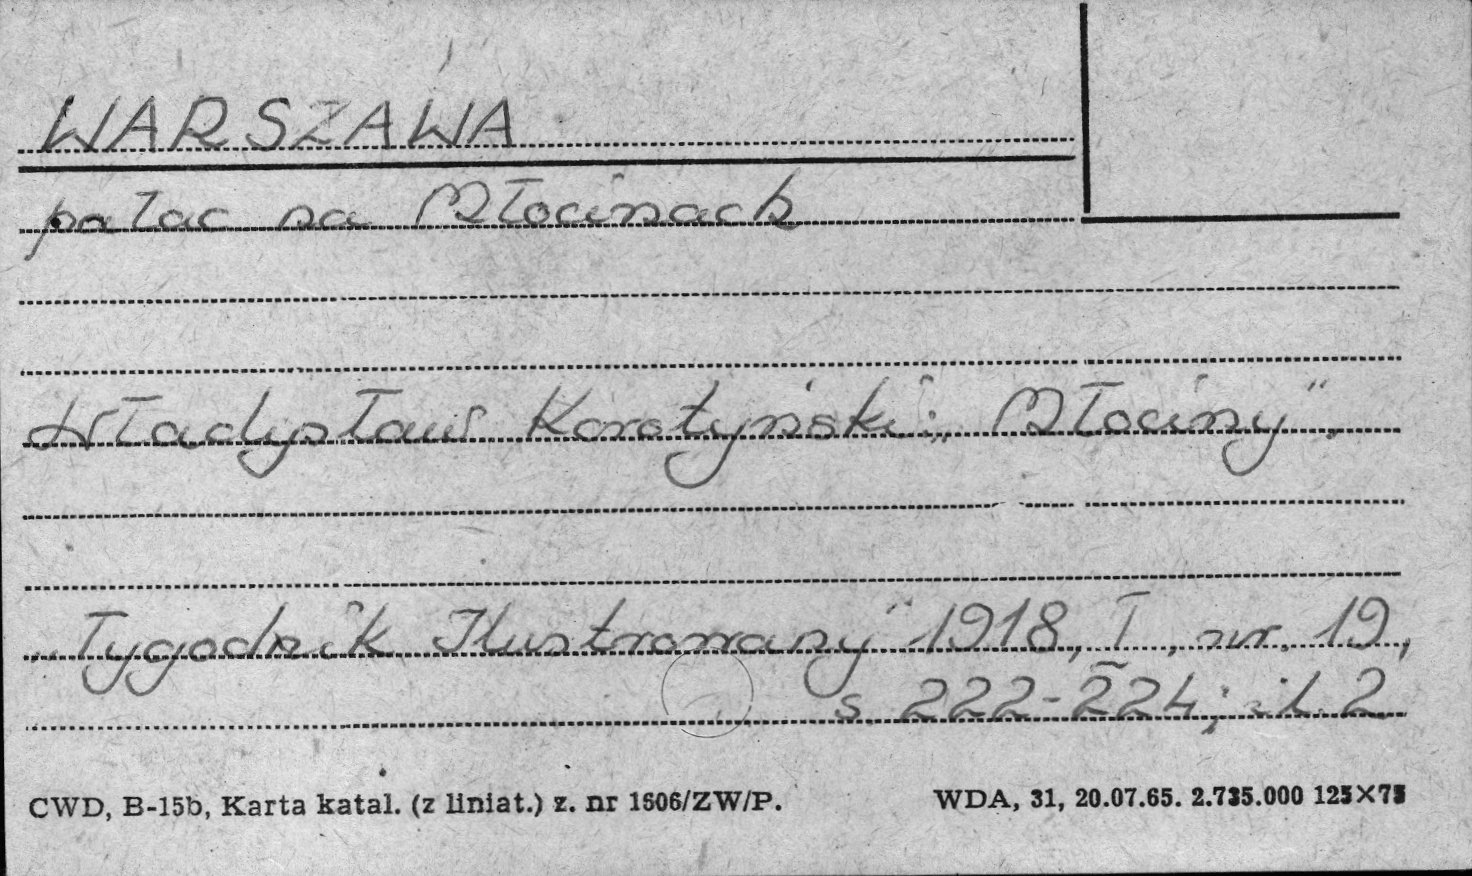 WARSZAWA
pałac na Młocinach
Władysław Korotyński: „Młociny".
„Tygodnik Ilustrowany" 1918, I, nr. 19,
s. 222-224; il. 2
CWD, B-15b, Karta katal. (z liniat.) z. nr 1606/ZW/P.
WDA, 31, 20.07.65. 2.735.000 125×75